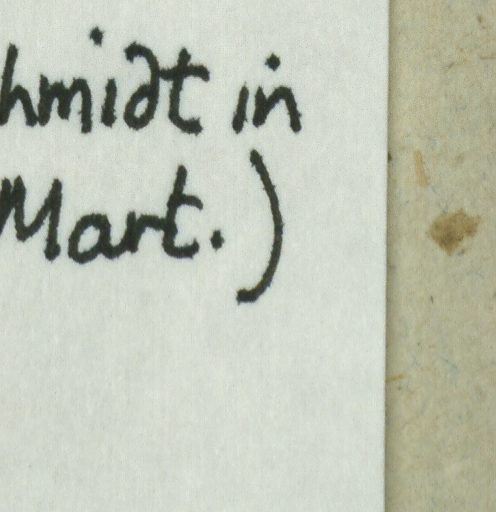 hmidt in
Mart.)